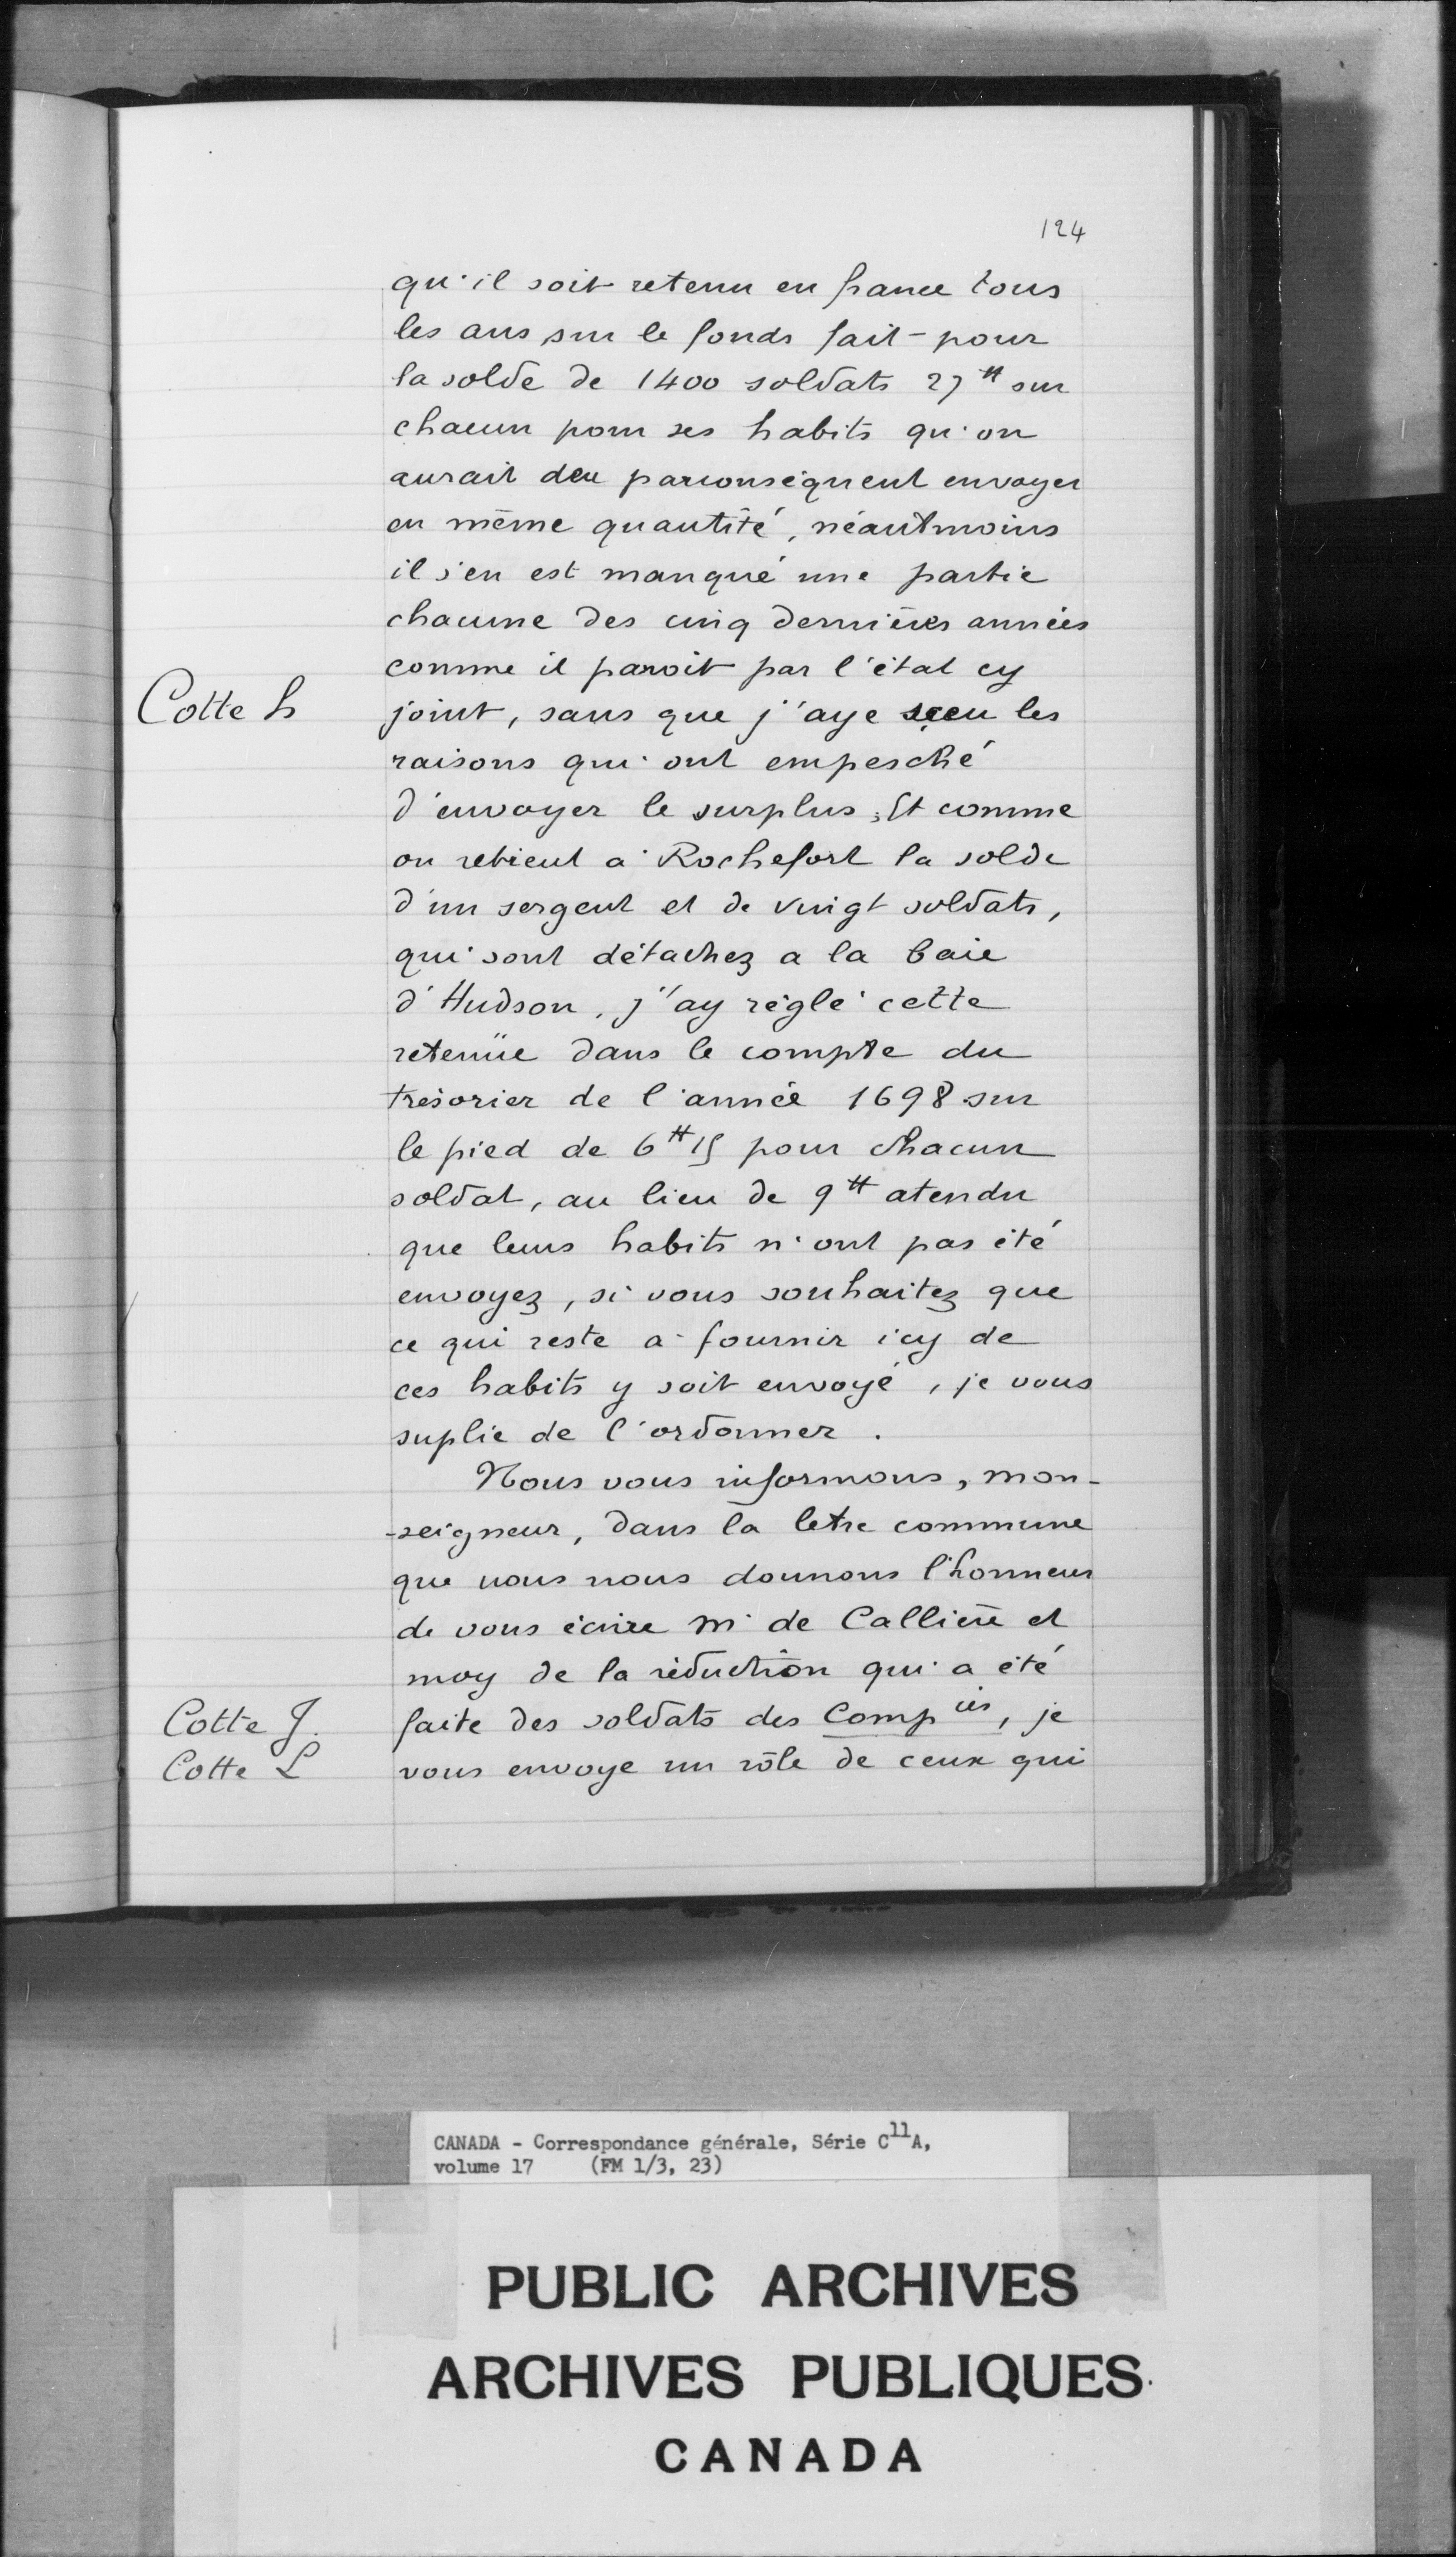 124
qu'il soit retenu en france tous
les ans sur le fonds fait pour
la solde de 1400 soldats 27 ₶ sur
chacun pour ses habits qu'on
aurait deu parconséquent envoyer
en même quantité, néantmoins
il s'en est manqué une partie
chacune des cinq dernières années
comme il paroit par l'état cy
Cotte h joint, sans que j'aye sceu les
raisons qui ont empesché
d'envoyer le surplus; Et comme
on retient a Rochefort la solde
d'un sergent et de vingt soldats,
qui sont détachez a la baie
d'Hudson, j'ay réglé cette
retenüe dans le compte du
trésorier de l'année 1698 sur
le pied de 6 ₶ 15 pour chacun
soldat, au lieu de 9 ₶ atendu
que leurs habits n'ont pas été
envoyez, si vous souhaitez que
ce qui reste a fournir icy de
ces habits y soit envoyé, je vous
suplie de l'ordonner.
Nous vous informons, mon-
-seigneur, dans la letre commune
que nous nous donnons l'honneur
de vous écrire mr de Callière et
moy de la réduction qui a été
Cotte J. faite des soldats des Comp ies, je
Cotte L vous envoye un rôle de ceux qui
CANADA - Correspondance générale, Série C11A,
volume 17 (FM 1/3, 23)
PUBLIC ARCHIVES
ARCHIVES PUBLIQUES
CANADA